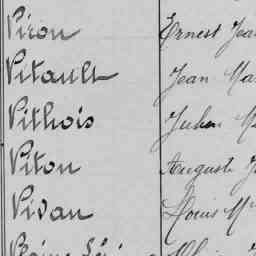 Piron Ernest Jea
Pitault Jean Ma
Pithois Julien M
Piton Auguste J
Pivan Louis M